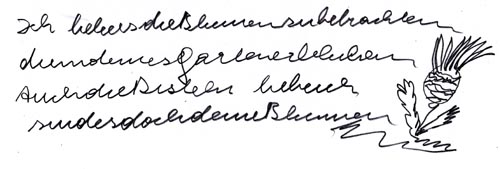 Ich liebe es die Blumen zu betrachten
die in deines garten erblühen
Auch die Disteln liebe ich
sind es doch deine Blumen